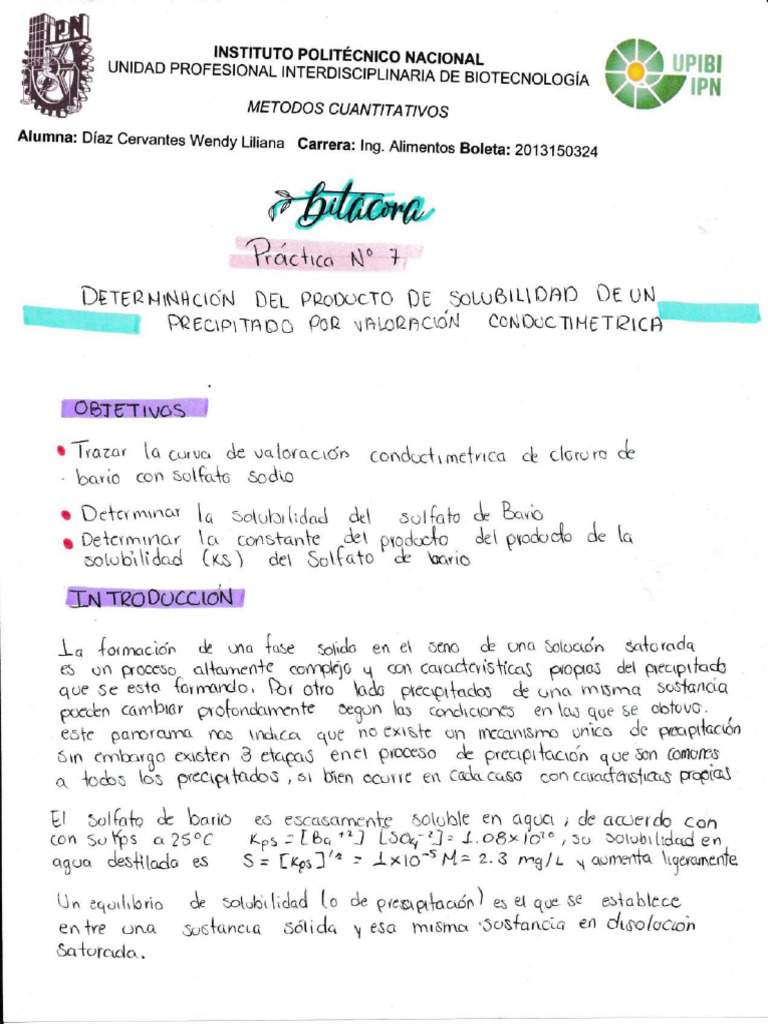 IPN
INSTITUTO POLITÉCNICO NACIONAL
UNIDAD PROFESIONAL INTERDISCIPLINARIA DE BIOTECNOLOGÍA
UPIBI
IPN
METODOS CUANTITATIVOS
Alumna: Díaz Cervantes Wendy Liliana Carrera: Ing. Alimentos Boleta: 2013150324
bitácora
Práctica Nº 7
DETERMINACIÓN DEL PRODUCTO DE SOLUBILIDAD DE UN
PRECIPITADO POR VALORACIÓN CONDUCTIMETRICA
OBJETIVOS
• Trazar la curva de valoración conductimetrica de cloruro de
bario con sulfato sodio
• Determinar la solubilidad del sulfato de Bario
• Determinar la constante del producto del producto de la
solubilidad (KS) del Sulfato de bario
INTRODUCCIÓN
La formación de una fase solido en el seno de una solución saturada
es un proceso altamente complejo y con características propias del precipitado
que se esta formando. Por otro lado precipitados de una misma sustancia
pueden cambiar profundamente segun las condiciones en las que se obtuvo.
este panorama nos indica que no existe un mecanismo unico de precapitación
Sin embargo existen 3 etapas en el proceso de precipitación que son comunes
a todos los precipitados, si bien ocurre en cada caso con características propias
El sulfato de bario es escasamente soluble en agua, de acuerdo con
con su Kps a 25°C Kps = [Ba⁺²] [SO₄⁻²] = 1.08x10¹⁰, su solubilidad en
agua destilada es S = [Kps]^1/2 = 1x10⁻⁵ M = 2.3 mg/L y aumenta ligeramente
Un equilibrio de solubilidad (o de precipitación) es el que se establece
entre una sustancia sólida y esa misma sustancia en disolución
saturada.